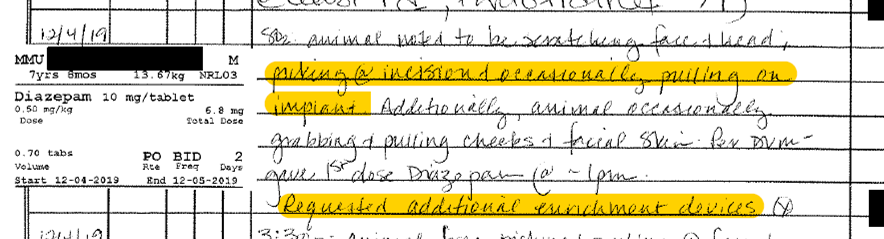 12/4/19
MMU M
7yrs 8mos 13.67kg NRL03
Diazepam 10 mg/tablet
0.50 mg/kg 6.8 mg
Dose Total Dose
0.70 tabs PO BID 2
Volume Rte Freq Days
Start 12-04-2019 End 12-05-2019
animal noted to be scratching face + head,
picking @ incision + occasionally pulling on
implant. Additionally, animal occasionally
grabbing + pulling cheeks + facial skin. Per DVM -
gave 1st dose Diazepam @ ~1pm.
Requested additional enrichment devices
12/4/19
3:30